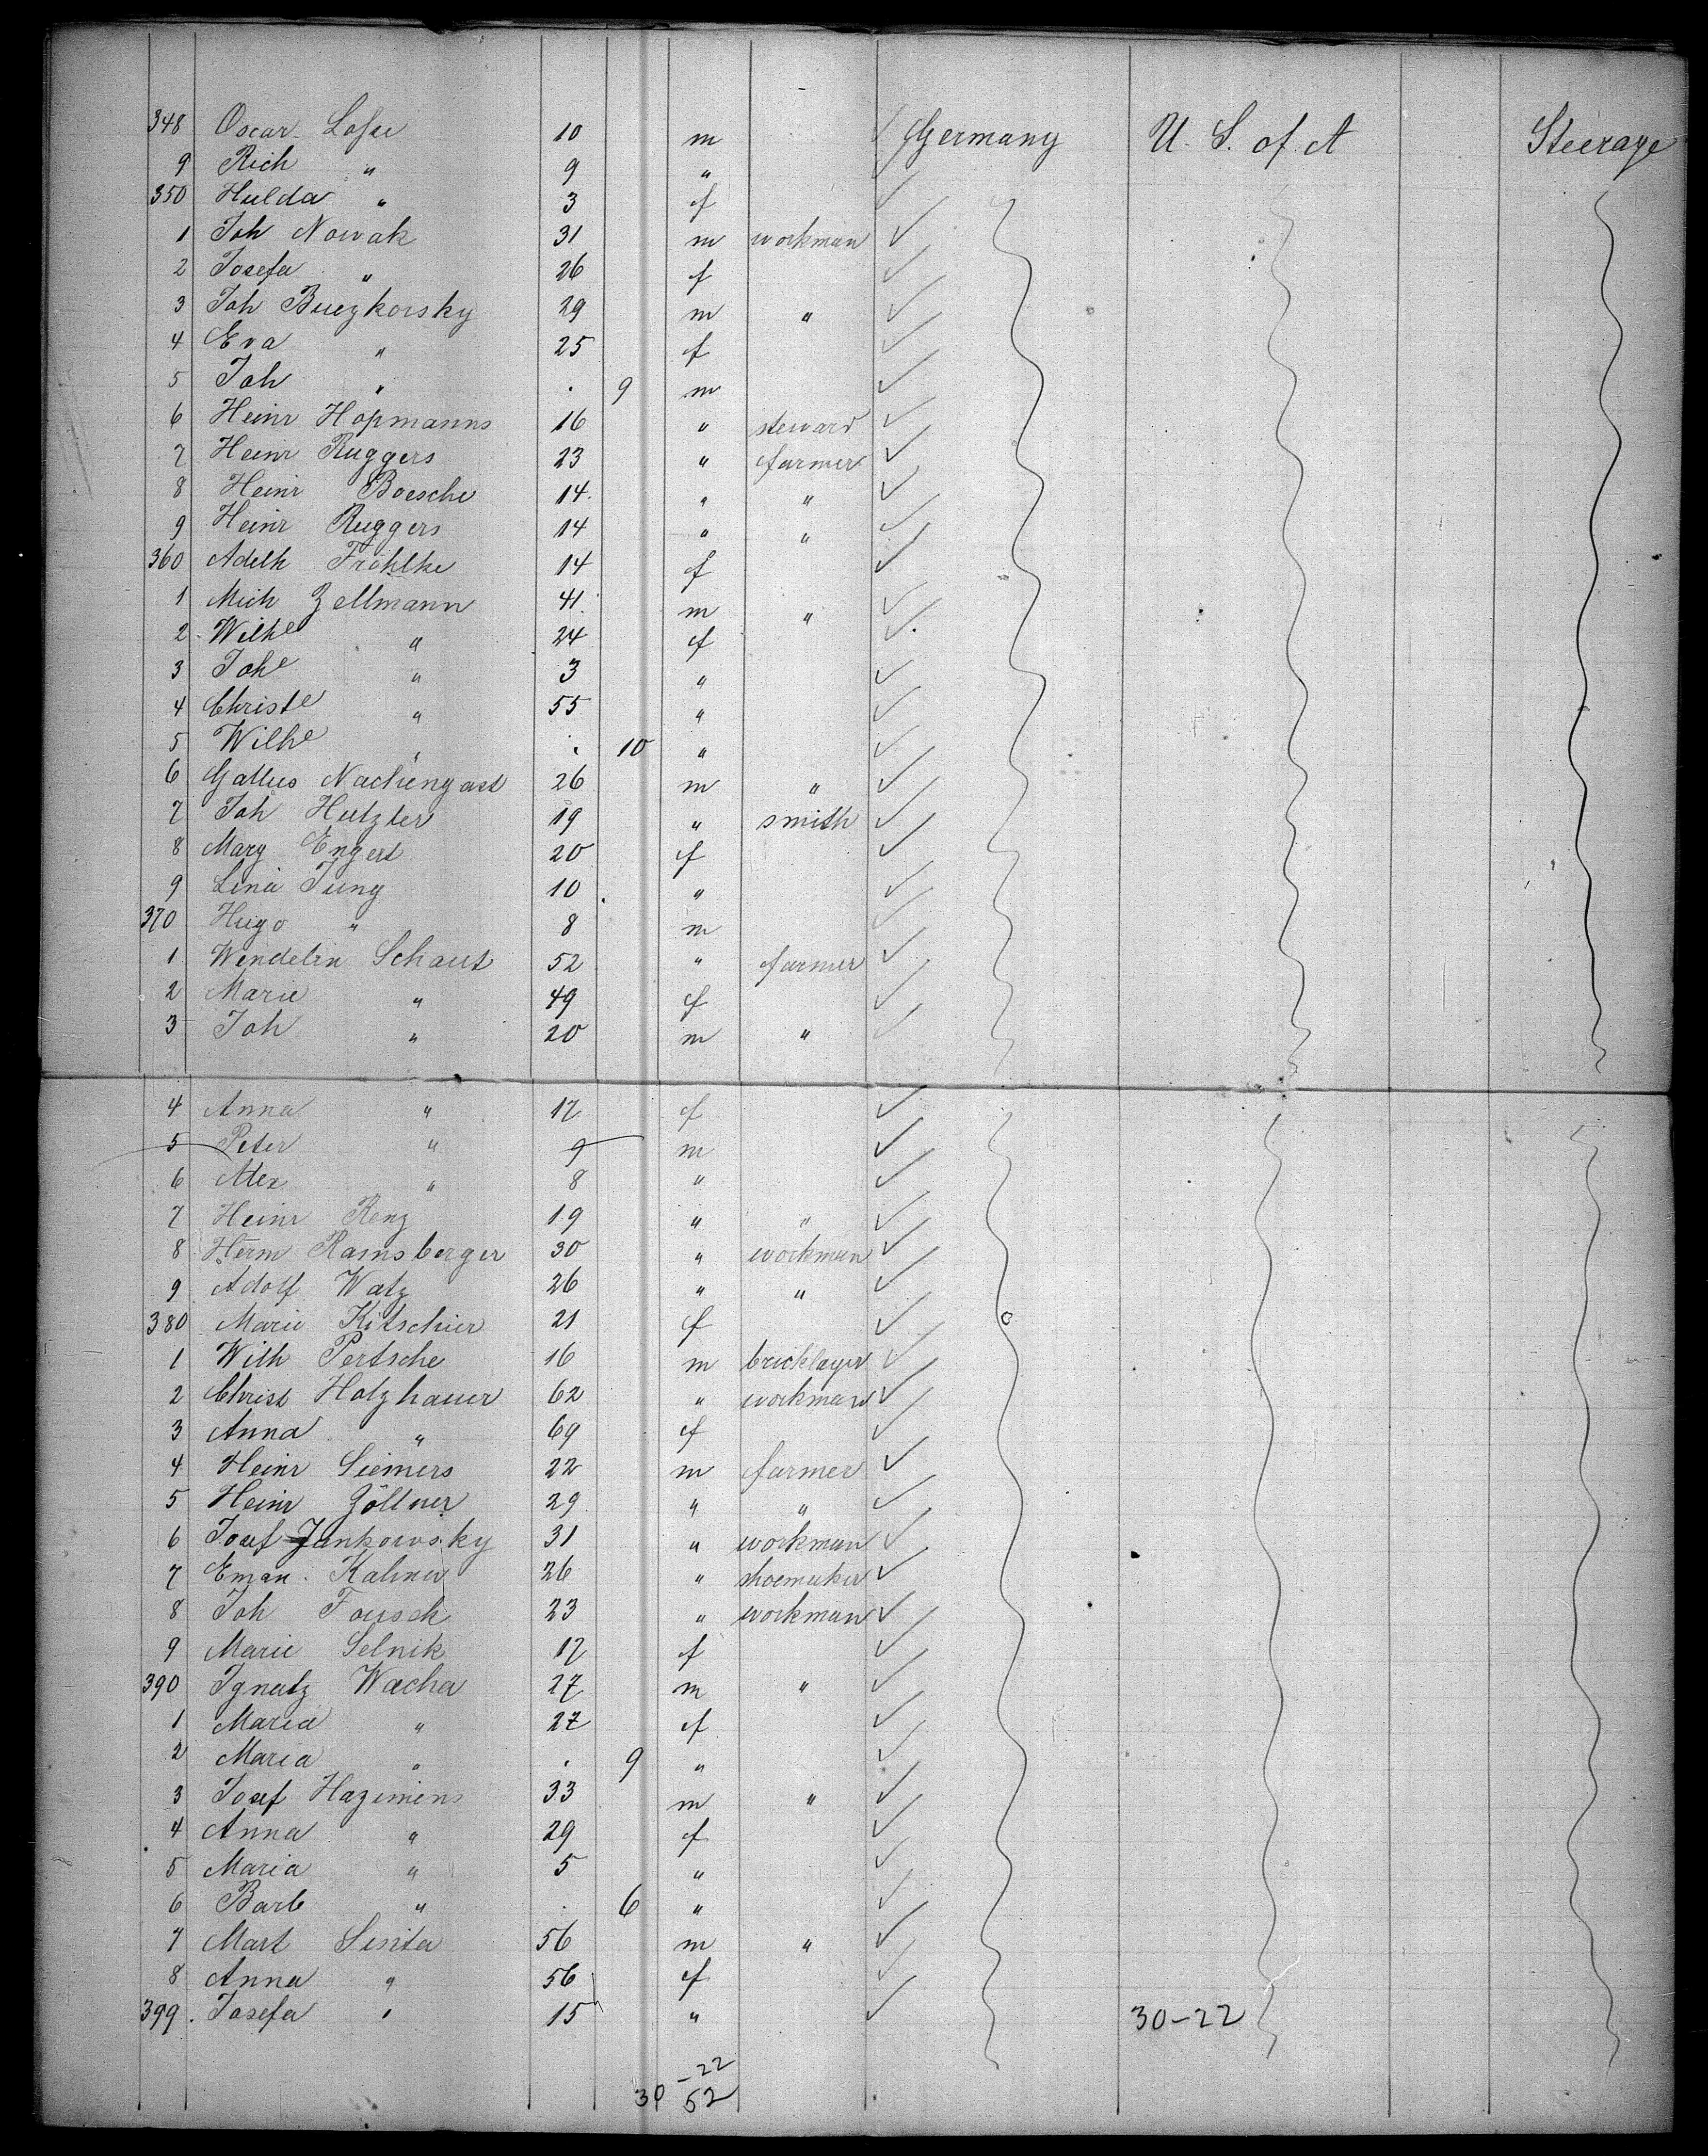 348 Oscar Losse 10 m Germany U. S. of A Steerage
9 Rich " 9 "
350 Hulda " 3 f
1 Joh Nowak 31 m workman
2 Josefa " 26 f
3 Joh Buczkorsky 29 m "
4 Eva " 25 f
5 Joh " . 9 m
6 Heinr Hopmanns 16 " steward
7 Heinr Ruggers 23 " farmer
8 Heinr Boesche 14 " "
9 Heinr Ruggers 14 " "
360 Adelh Fröhlke 14 f
1 Mich Zellmann 41 m "
2 Wilhe " 24 f
3 Johe " 3 "
4 Christe " 55 "
5 Wilhe " . 10 "
6 Gallus Nachengast 26 m "
7 Joh Hutzler 19 " smith
8 Marg Engert 20 f
9 Lina Jung 10 "
370 Hugo " 8 m
1 Wendelin Schaut 52 " farmer
2 Marie " 49 f
3 Joh " 20 m "
4 Anna " 17 f
5 Peter " 9 m
6 Alex " 8 "
7 Heinr Renz 19 " "
8 Herm Ramsberger 30 " workman
9 Adolf Watz 26 " "
380 Marie Kitschier 21 f
1 Wilh Pertsche 16 m bricklayer
2 Christ Holzhauer 62 " workman
3 Anna " 69 f
4 Heinr Siemers 22 m farmer
5 Heinr Zöllner 29 " "
6 Josef Jankowsky 31 " workman
7 Eman. Kalmer 26 " shoemaker
8 Joh Fousek 23 " workman
9 Marie Selnik 17 f
390 Ignatz Wacha 27 m "
1 Maria " 27 f
2 Maria " . 9 "
3 Josef Hazimens 33 m "
4 Anna " 29 f
5 Maria " 5 "
6 Barb " . 6 "
7 Mart Sisita 56 m "
8 Anna " 56 f
399. Josefa " 15 " 30-22
-22
30 52